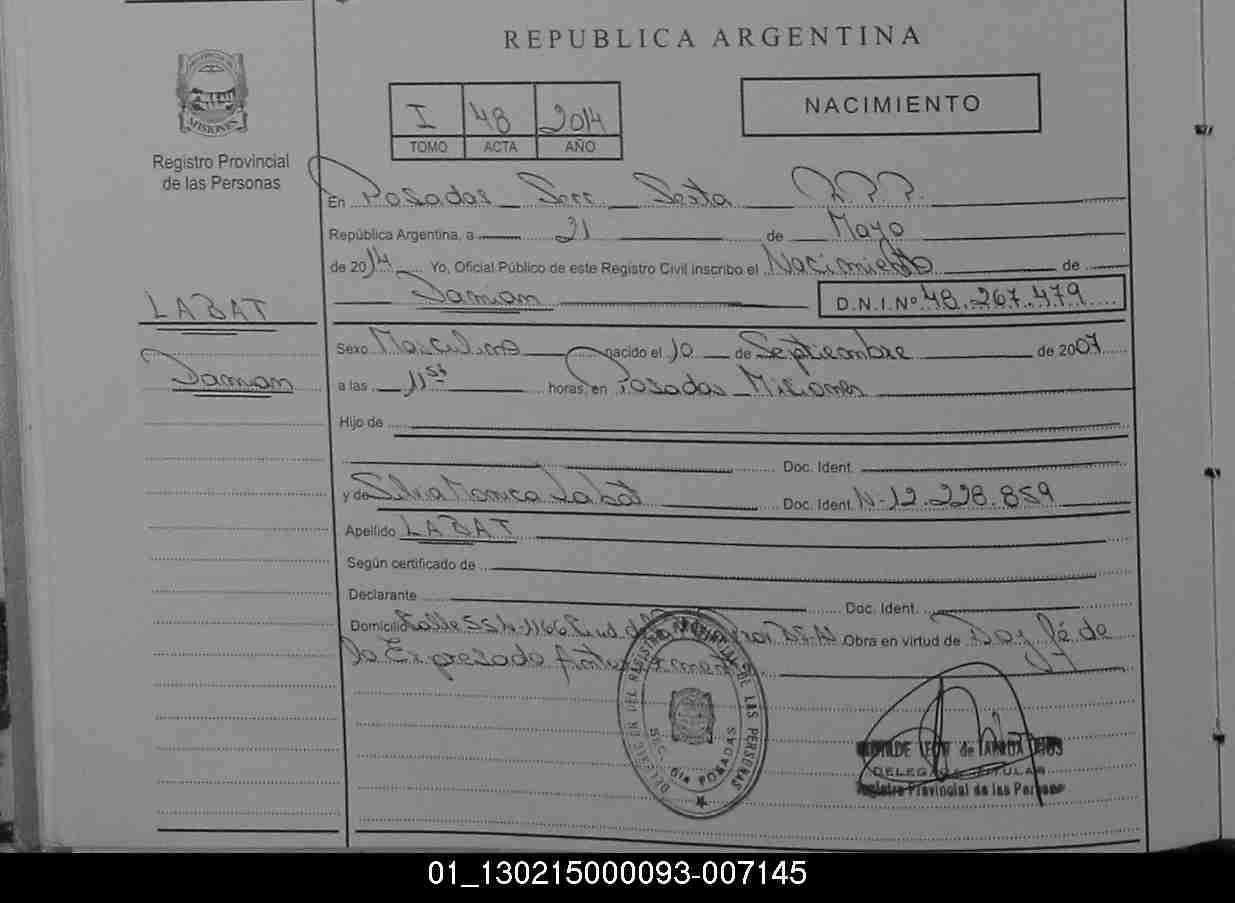 REPUBLICA ARGENTINA
MISIONES
Registro Provincial
de las Personas
I 48 2014
TOMO ACTA AÑO
NACIMIENTO
En Posadas Secc Sexta R.P.P.
República Argentina, a 21 de Mayo
de 2014 Yo, Oficial Público de este Registro Civil inscribo el Nacimiento de
Damian D.N.I.Nº 48.267.479
LABAT
Damian
Sexo Masculino nacido el 10 de Septiembre de 2007
a las 11 horas, en Posadas Misiones
Hijo de
Doc. Ident.
y de Silvia Monica Labat Doc. Ident. N-12.228.859
Apellido LABAT
Según certificado de
Declarante Doc. Ident.
Domicilio Calle 554-1166 Obra en virtud de Doy fé de
lo Expresado
DELEGACION DEL REGISTRO PROVINCIAL DE LAS PERSONAS
SEC. 6ta POSADAS
DELEGADA TITULAR
Registro Provincial de las Personas
01_130215000093-007145